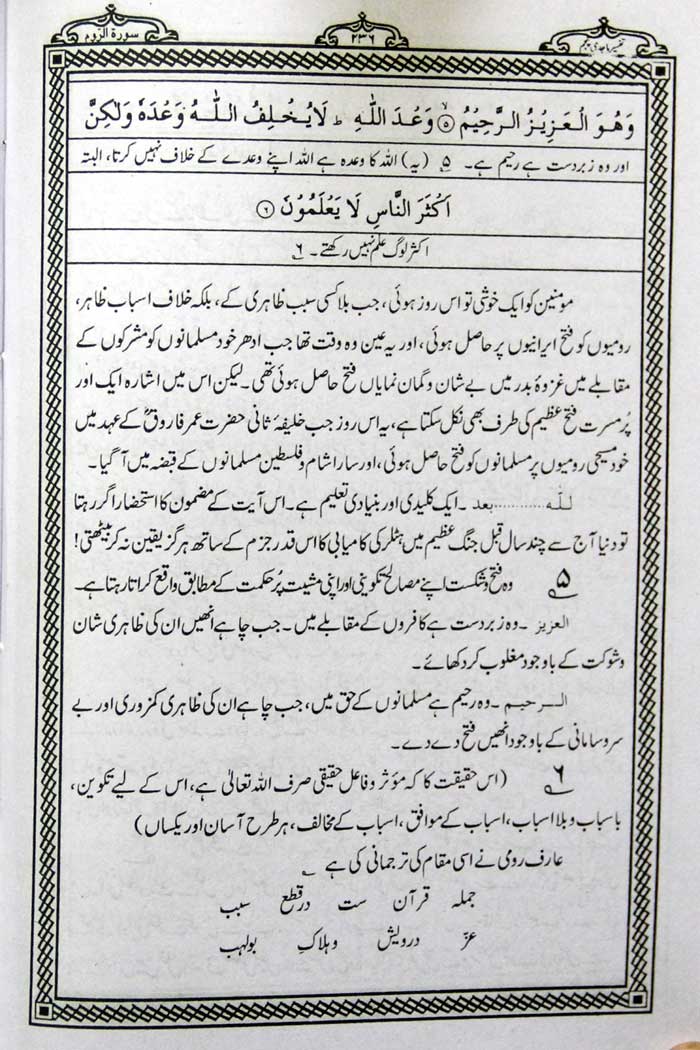 تفسیر ماجدی پنجم
۲۳۶
سورة الرّوم
وَهُوَ الْعَزِيْزُ الرَّحِيْمُ ۙ﴿۵﴾ وَعْدَ اللّٰهِ ؕ لَا يُخْلِفُ اللّٰهُ وَعْدَهٗ وَلٰكِنَّ
اور وہ زبردست ہے رحیم ہے۔ ۵ (یہ) اللہ کا وعدہ ہے اللہ اپنے وعدے کے خلاف نہیں کرتا، البتہ
اَكْثَرَ النَّاسِ لَا يَعْلَمُوْنَ ﴿۶﴾
اکثر لوگ علم نہیں رکھتے۔ ۶
مومنین کو ایک خوشی تو اس روز ہوئی، جب بلا کسی سبب ظاہری کے، بلکہ خلاف اسباب ظاہر،
رومیوں کو فتح ایرانیوں پر حاصل ہوئی، اور یہ عین وہ وقت تھا جب ادھر خود مسلمانوں کو مشرکوں کے
مقابلے میں غزوۂ بدر میں بے شان و گمان نمایاں فتح حاصل ہوئی تھی۔ لیکن اس میں اشارہ ایک اور
پُر مسرت فتح عظیم کی طرف بھی نکل سکتا ہے، یہ اس روز جب خلیفۂ ثانی حضرت عمر فاروقؓ کے عہد میں
خود مسیحی رومیوں پر مسلمانوں کو فتح حاصل ہوئی، اور سارا شام و فلسطین مسلمانوں کے قبضہ میں آ گیا۔
للّٰہ ............ بعد ۔ ایک کلیدی اور بنیادی تعلیم ہے۔ اس آیت کے مضمون کا استحضار اگر رہتا
تو دنیا آج سے چند سال قبل جنگ عظیم میں ہٹلر کی کامیابی کا اس قدر جزم کے ساتھ ہرگز یقین نہ کر بیٹھتی!
۵ وہ فتح و شکست اپنے مصالح تکوینی اور اپنی مشیت پُر حکمت کے مطابق واقع کراتا رہتا ہے۔
العزیز ۔ وہ زبردست ہے کافروں کے مقابلے میں۔ جب چاہے انھیں ان کی ظاہری شان
و شوکت کے باوجود مغلوب کر دکھائے۔
الرحیم ۔ وہ رحیم ہے مسلمانوں کے حق میں، جب چاہے ان کی ظاہری کمزوری اور بے
سر و سامانی کے باوجود انھیں فتح دے دے۔
۶ (اس حقیقت کا کہ مؤثر و فاعل حقیقی صرف اللہ تعالیٰ ہے، اس کے لیے تکوین،
با سباب و بلا اسباب، اسباب کے موافق، اسباب کے مخالف، ہر طرح آسان اور یکساں)
عارف رومی نے اسی مقام کی ترجمانی کی ہے ؂
جملہ قرآن ست در قطع سبب
عزّ درویش و ہلاکِ بولہب